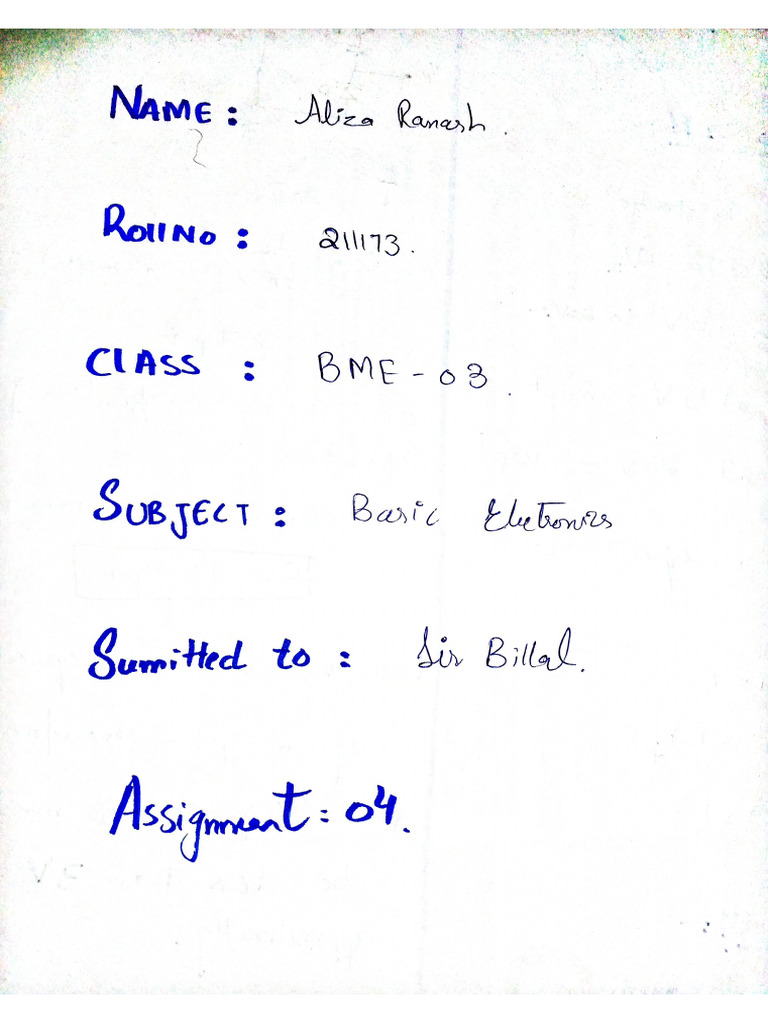 NAME: Aliza Ranash.
Roll No: 211173.
CLASS: BME-03.
SUBJECT: Basic Eletronics
Sumitted to: Sir Billal.
Assignment: 04.